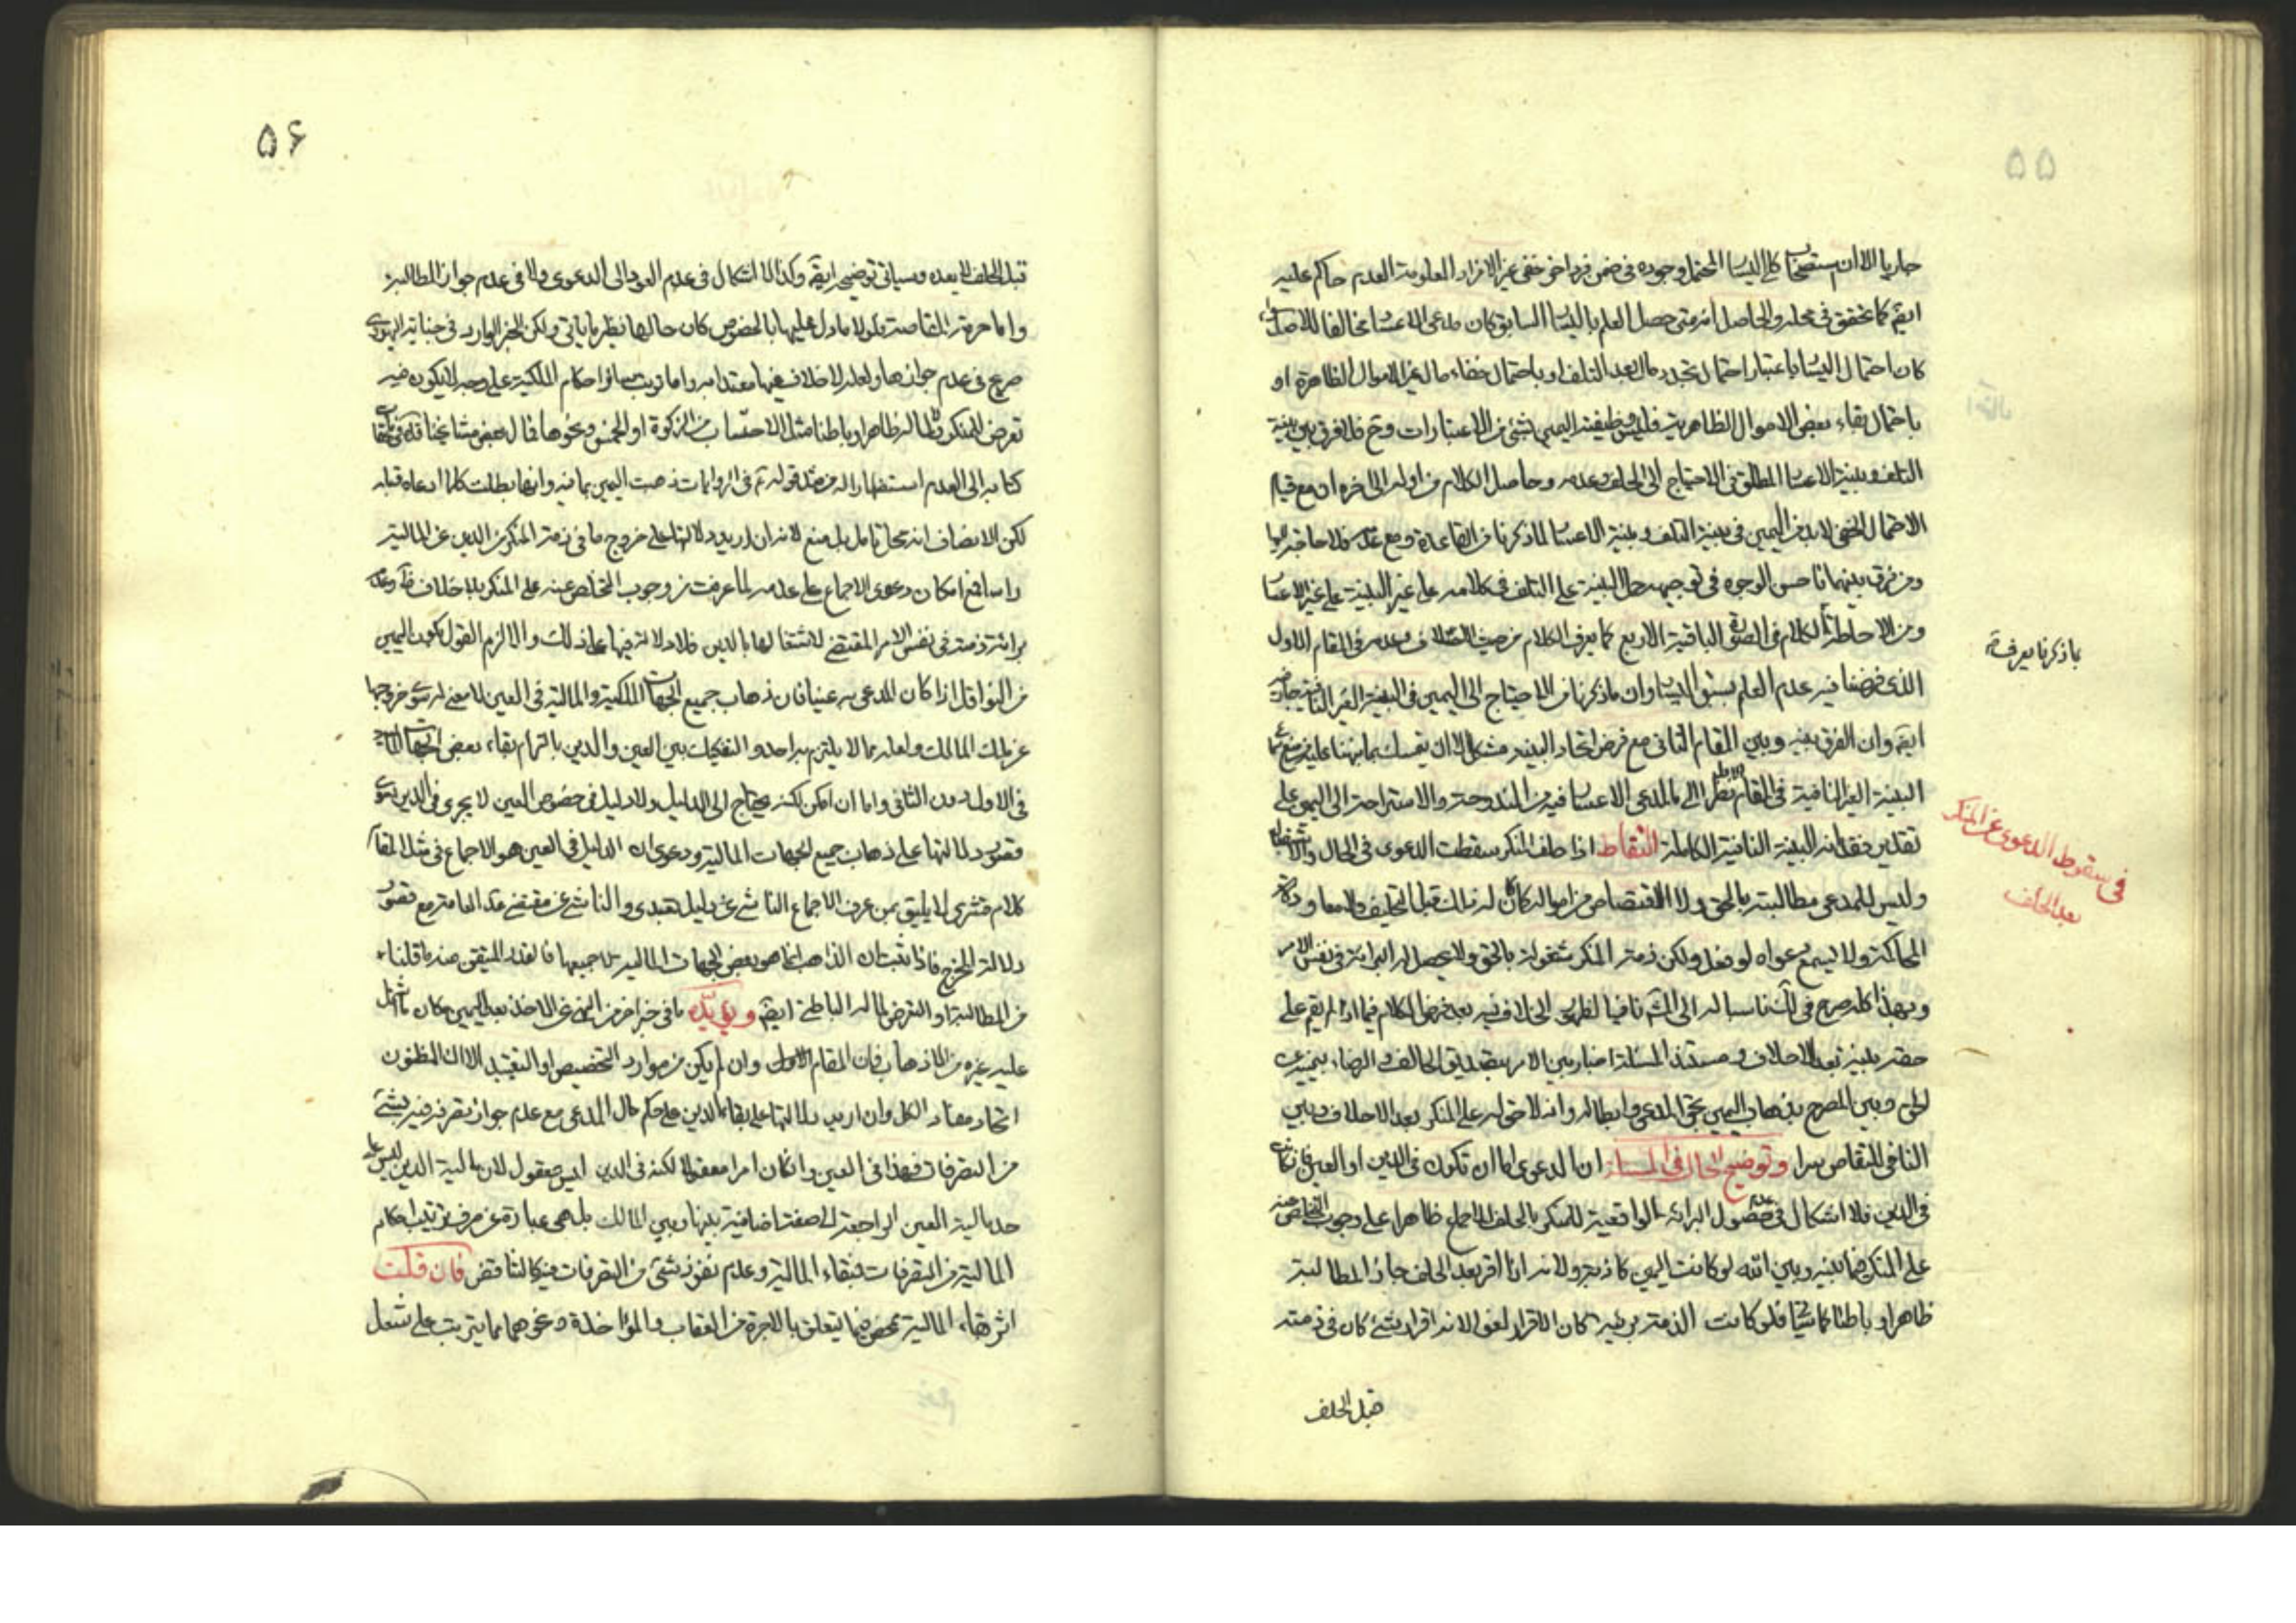 ۵۵
جاريا الا ان استصحاب كلى اليسار المحتمل وجوده فى ضمن فرد اخر خفى غير الافراد المعلومة العدم حاكم عليه
ايضا كما تحقق فى محله والحاصل انه متى حصل العلم باليسار السابق كان مدعى الاعسار مخالفا للاصل
كان احتمال اليسار باعتبار احتمال تجدد مال بعد التلف او باحتمال خفاء مال غير الاموال الظاهرة او
باحتمال بقاء بعض الاموال الظاهرية فليس وظيفته اليمين بشئ من الاعتبارات وح فلا فرق بين بينة
التلف وبينة الاعسار المطلق فى الاحتياج الى الحلف وعدمه وحاصل الكلام من اوله الى اخره ان مع قيام
الاحتمال الخفى لابد من اليمين فى بينة التلف وبينة الاعسار لما ذكرنا من القاعدة ومع عدمه فلا حاجة اليها
ومن فرق بينهما فاحسن الوجوه فى توجيهه حمل البينة على التلف فى كلامه على غير البينة على غير الاعسار
ومن الاحاطة الكلام فى الصور الباقية الاربع كما يعرف الكلام من حيث الحلاف وعدمه فى المقام الاول
باذكرنا يعرفة
الذى فرضنا فيه عدم العلم بسبق اليسار وان ماذكرنا من الاحتياج الى اليمين فى البينة الغير النافية جار فيه
ايضا وان الفرق بينه وبين المقام الثانى مع فرض اتحاد البينة مشكل الا ان يتمسك بما نبهنا عليه من منع
البينة الغير النافية فى المقام الاول نظرا الى ما للمدعى الاعسار فيه من المندوحة والاستراحة الى اليمين على
تقدير فقدانه البينة النافية الكاملة التقاط اذا حلف المنكر سقطت الدعوى فى الحال
فى سقوط الدعوى عن المنكر
بعد الحلف
وليس للمدعى مطالبته بالحق ولا الاقتصاص من امواله كما كان له ذلك قبل التحليف ولا معاودة
المحاكمة ولا يسمع دعواه لو فعل ولكن ذمة المنكر مشغولة بالحق ولا يحصل له البراءة فى نفس الامر
وبهذا كله صرح فى لك ناسبا له الى الشهرة نافيا لظهور الخلاف فيه بعد فرض الكلام فيما اذا لم يقم على
حقه بينة بعد الاحلاف ومستند المسئلة اخبار بين الامر بتصديق الحالف والرضاء بيمينه
لحق وبين المصرح بذهاب اليمين بحق المدعى وابطاله وانه لا حق له على المنكر بعد الاحلاف وبين
النافى للتقاص سرا وتوضيح الحال فى المسئلة ان الدعوى اما ان تكون فى الدين او العين فان كان
فى الدين فلا اشكال فى عدم حصول البرائة الواقعية للمنكر بالحلف للاجماع ظاهرا على وجوب التخلص عنه
على المنكر فيما بينه وبين الله لو كانت اليمين كاذبة ولانه اذا اقر بعد الحلف جاز المطالبة
ظاهرا وباطنا كما سيأتى فلو كانت الذمة بريئة كان الاقرار لغوا لانه اقرار بشئ كان فى ذمته
قبل الحلف
۵۶
قبل الحلف لا بعده وسياتى توضيحه ايضا وكذا لا اشكال فى عدم العود الى الدعوى ولا فى عدم جواز المطالبة
واما حرمة المقاصة فلولا ما دل عليها بالخصوص كان حالها نظير ما ياتى ولكن الخبر الوارد فى خيانة اليهودى
صريح فى عدم جوازها ولعله لا خلاف فيها معتدا به واما ترتيب سائر احكام الملكية على وجه لا يكون فيه
تعرض للمنكر ولماله ظاهرا وباطنا مثل الاحتساب من الزكوة او الخمس ونحوها قال بعض مشايخنا
كتابه الى العدم استظهارا له من مثل قوله ع فى الروايات ذهبت اليمين بما فيه وانها بطلت كلما ادعاه قبله
لكن الانصاف انه محل تامل بل منع لانه ان اريد دلالتها على خروج ما فى ذمة المنكر من الدين عن المالية
راسا فمع امكان دعوى الاجماع على عدمه لما عرفت من وجوب التخلص عنه على المنكر بلا خلاف
برائة ذمته فى نفس الامر المقتضى لاشتغالها بالدين فلا دلالة فيها على ذلك والا لزم القول بكون اليمين
من النواقل اذا كان المدعى به عينا فان ذهاب جميع الجهات الملكية والمالية فى العين لا معنى له سوى خروجها
عن ملك المالك ولعله مما لا يلتزم به احد والتفكيك بين العين والدين بالتزام بقاء بعض الجهات
فى الاول دون الثانى واما ان امكن لكنه يحتاج الى الدليل ولا دليل فى خصوص العين لا يجرى فى الدين سوى
قصور دلالتها على ذهاب جميع الجهات المالية ودعوى ان الدليل فى العين هو الاجماع فى مثل المقام
كلام قشرى لا يليق بمن عرف الاجماع الناشى عن دليل تعبدى والناشى عن مقتضى القاعدة مع قصور
دلالة المخرج فاذا ثبت ان الذاهب انما هو بعض الجهات المالية لا جميعها فالقدر المتيقن منه ما قلناه
من المطالبة او التعرض لماله الباطنى ايضا ويؤيده ما فى خبر اخر من النهى عن الاخذ بعد اليمين مكان ما اشتمل
عليه غيره من الذهاب فان المقام الاول وان لم يكن من موارد التخصيص او التقييد الا ان المظنون
اتحاد مفاد الكل وان اريد دلالتها على بقاء الدين على حكم مال المدعى مع عدم جواز تصرفه فيه بشئ
من التصرفات فهذا فى العين وان كان امرا معقولا لكنه فى الدين ليس معقول لان مالية الدين ليس على
حد مالية العين الراجعة الى صفة اضافية بينها وبين المالك بل هى عبارة عن صرف ترتيب احكام
المالية من التصرفات فبقاء المالية وعدم نفوذ شئ من التصرفات فيه كالتناقض فان قلت
اثر بقاء المالية يمحض فيما يتعلق بالاخرة من العقاب والمؤاخذة ونحوهما مما يترتب على شغل